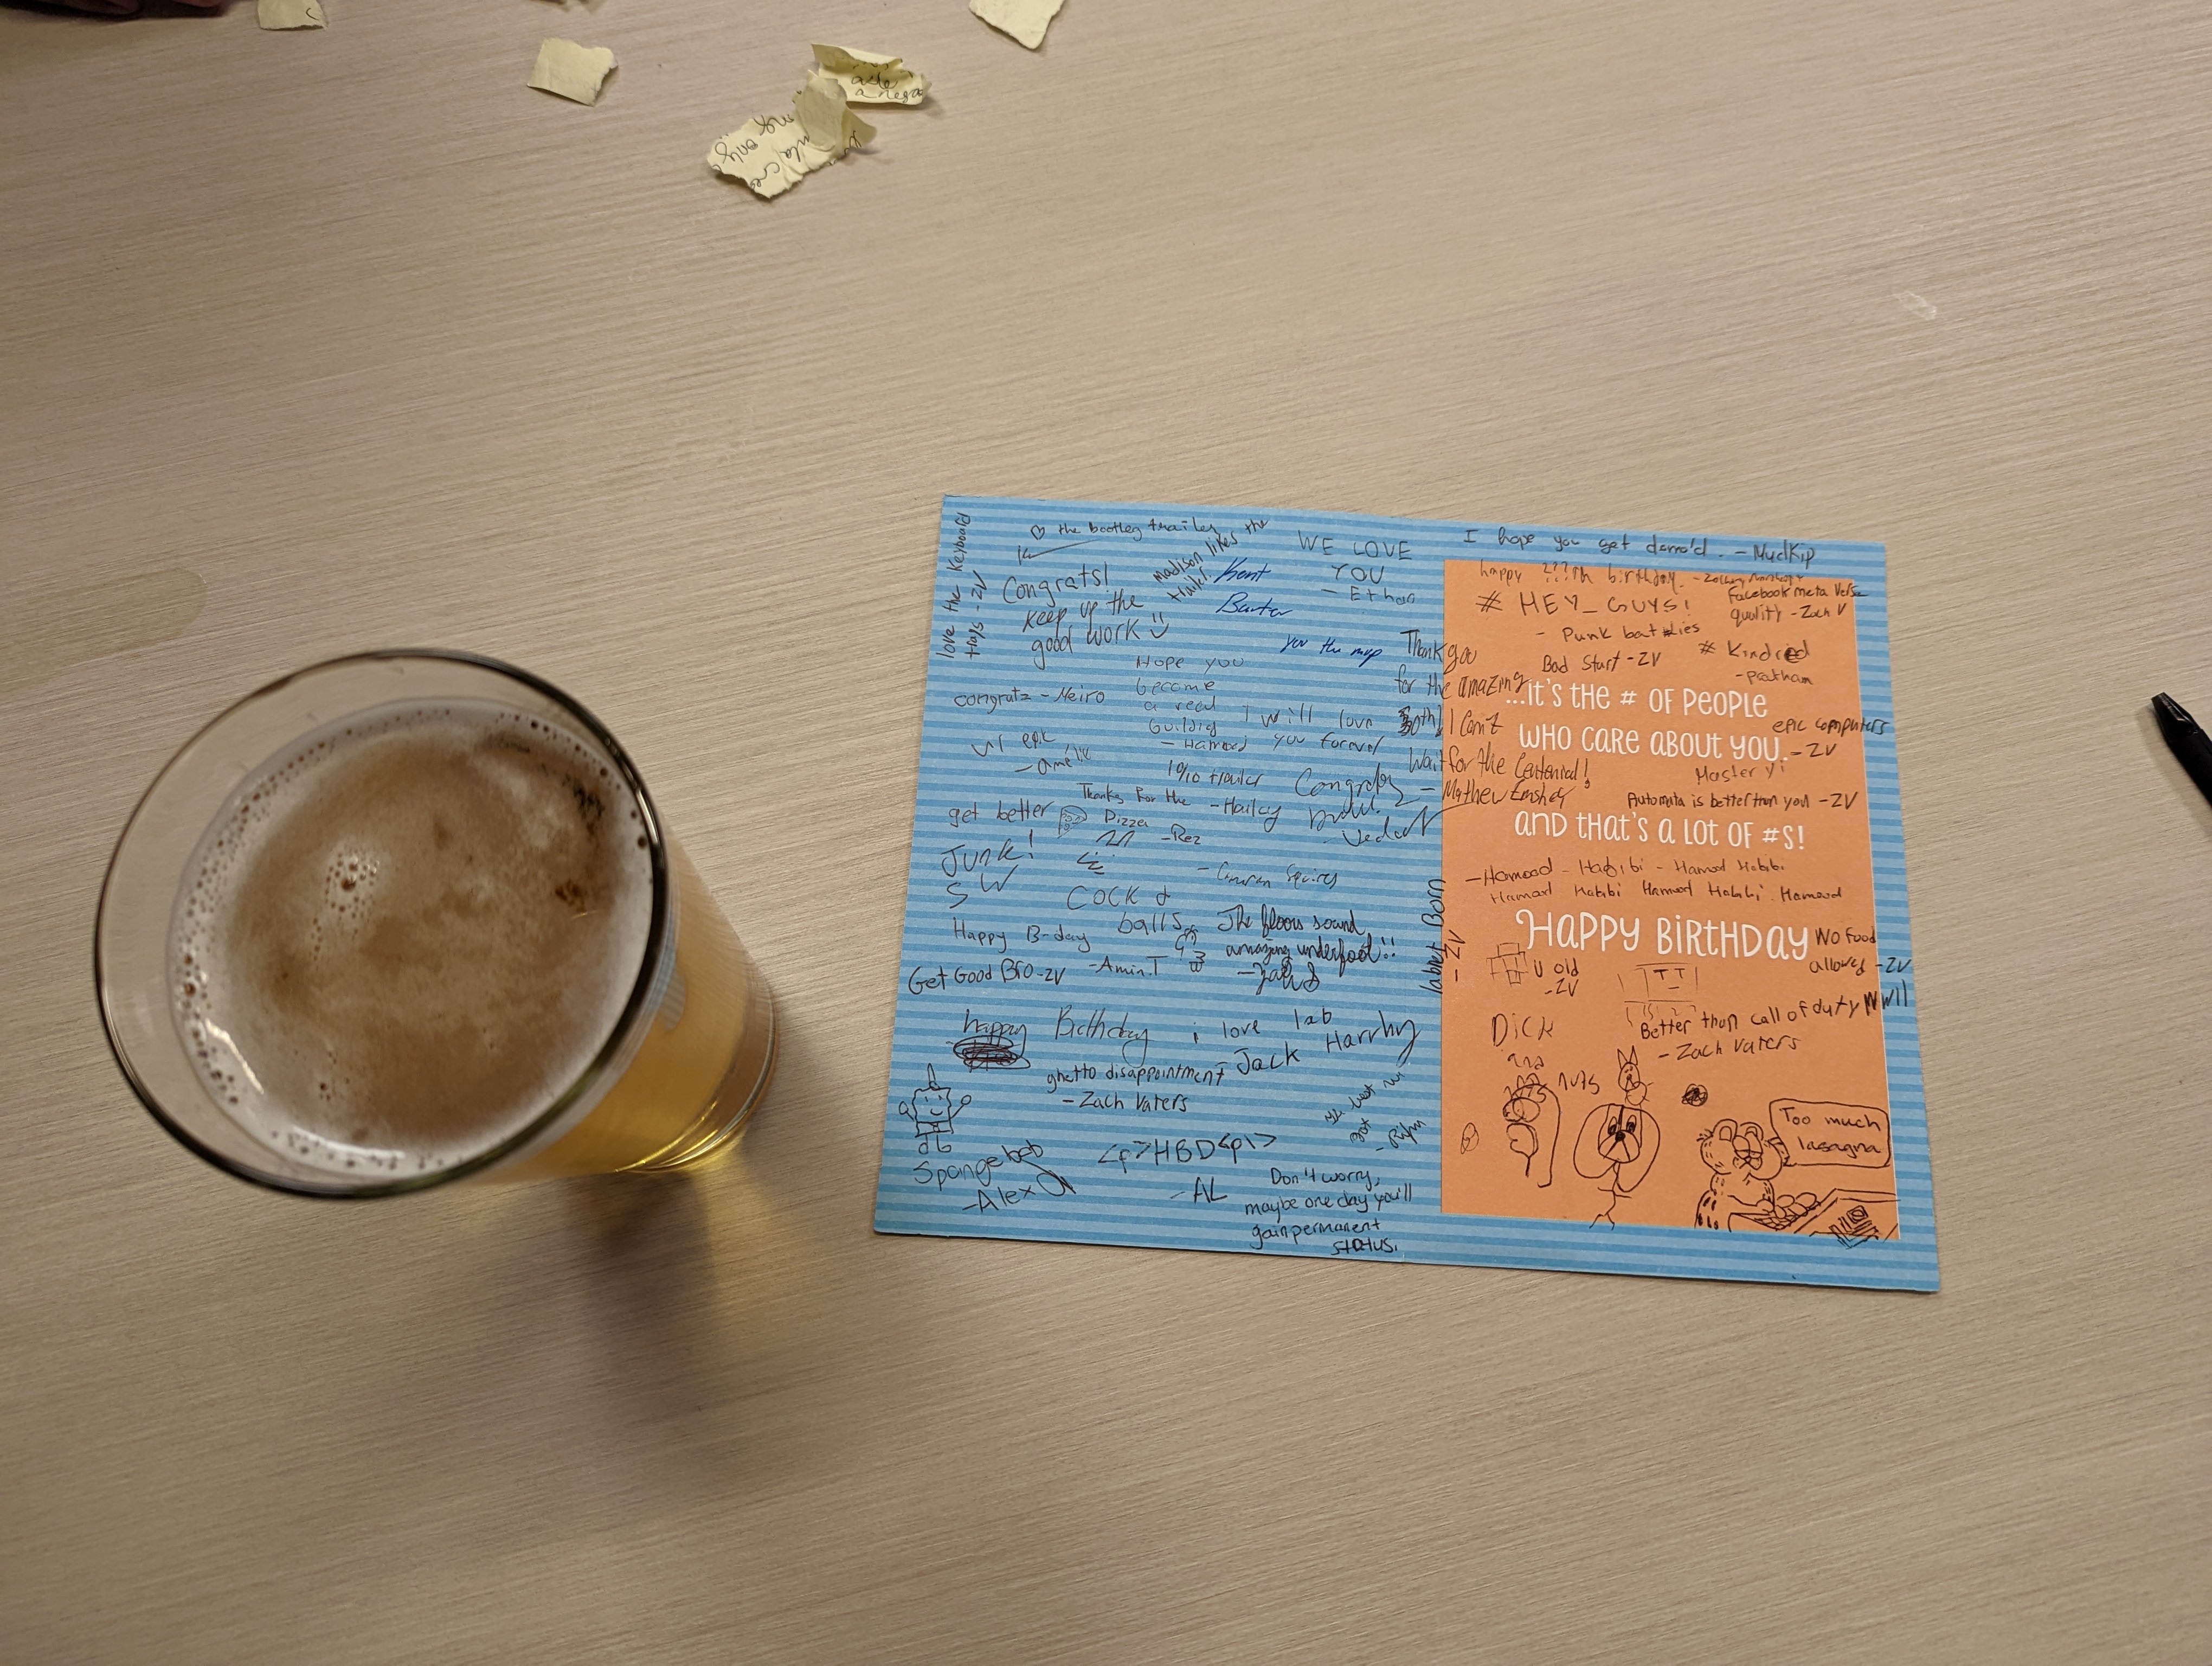 love the Keyboard
trays - ZV
♡ the bootleg trailer
Madison likes the
trailer.
Congrats!
Keep up the
good work
Kent
Baxter
you the mvp
WE LOVE
YOU
- Ethan
congratz - Neiro
Hope you
become
a real
building
- Hamood
I will love
you forever
ur epic
- amélie
10/10 trailer
- Hailey
Congratz
Thanks for the
Pizza
- Rez
get better
Junk!
SW
COCK &
balls
Happy B-day
- Amin.T
Get Good Bro - ZV
The floors sound
amazing underfoot!!
happy Birthday
i love lab
- Jack
ghetto disappointment
- Zach Vaters
Spongebob
- Alex
<p>HBD<p\>
- AL
Don't worry,
maybe one day you'll
gain permanent
status.
Thank you
for the amazing
I Can't
Wait for the Centennial!
- Mathew
labret Born
- ZV
I hope you get demo'd. - MudKip
happy ???th birthday.
Facebook meta Verse
quality - Zach V
# HEY_GUYS!
- Punk
Bad Start - ZV
# Kindred
- Pratham
...it's the # of people
who care about you...
epic computers
- ZV
Master Yi
Automata is better than you - ZV
and that's a lot of #s!
- Hamood - Habibi - Hamod Habibi
Hamood Habibi Hamood Habibi Hamood
Happy Birthday
No food
allowed - ZV
U old
- ZV
Better than call of duty MWII
- Zach Vaters
Dick
and
nuts
Too much
lasagna